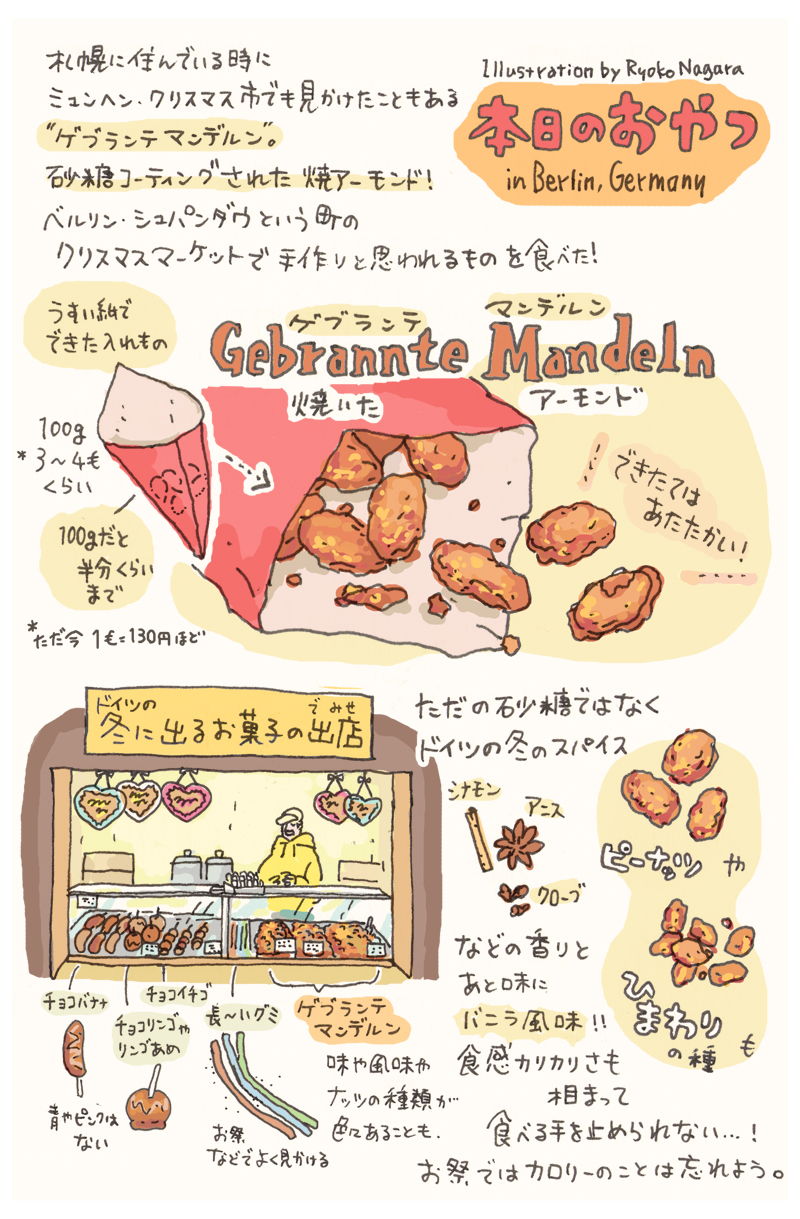 札幌に住んでいる時に
ミュンヘン・クリスマス市でも見かけたこともある
"ゲブランテマンデルン"。
砂糖コーティングされた焼アーモンド!
ベルリン・シュパンダウという町の
クリスマスマーケットで手作りと思われるものを食べた!
Illustration by Ryoko Nagara
本日のおやつ
in Berlin, Germany
うすい紙で
できた入れもの
ゲブランテ マンデルン
Gebrannte Mandeln
焼いた アーモンド
100g
*3〜4€
くらい
100gだと
半分くらい
まで
*ただ今 1€=130円ほど
できたては
あたたかい!
ドイツの
でみせ
冬に出るお菓子の出店
チョコバナナ
チョコイチゴ
チョコリンゴや
リンゴあめ
青やピンクは
ない
長〜いグミ
お祭
などでよく見かける
ゲブランテ
マンデルン
味や風味や
ナッツの種類が
色々あることも、
ただの砂糖ではなく
ドイツの冬のスパイス
シナモン
アニス
クローブ
などの香りと
あと味に
バニラ風味!!
食感カリカリさも
相まって
食べる手を止められない…!
お祭ではカロリーのことは忘れよう。
ピーナッツや
ひまわり
の種も